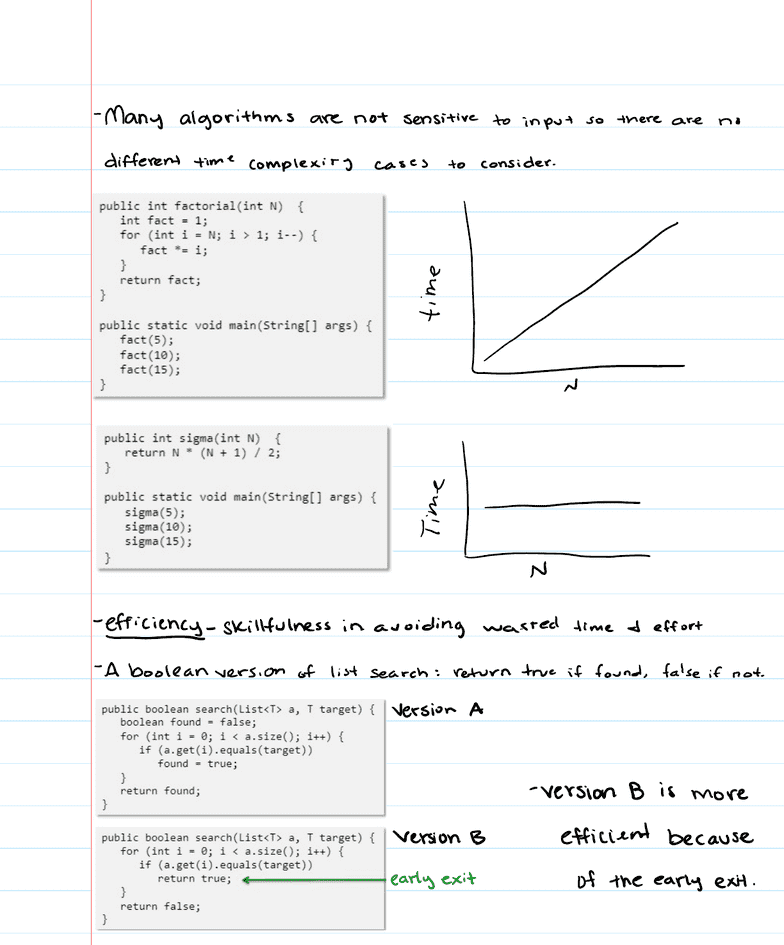 -Many algorithms are not sensitive to input so there are no
different time complexity cases to consider.
public int factorial(int N)  {
   int fact = 1;
   for (int i = N; i > 1; i--) {
      fact *= i;
   }
   return fact;
}
public static void main(String[] args) {
   fact(5);
   fact(10);
   fact(15);
}
time
N
public int sigma(int N)  {
   return N * (N + 1) / 2;
}
public static void main(String[] args) {
   sigma(5);
   sigma(10);
   sigma(15);
}
Time
N
-efficiency - skillfulness in avoiding wasted time & effort
-A boolean version of list search: return true if found, false if not.
public boolean search(List<T> a, T target) {
   boolean found = false;
   for (int i = 0; i < a.size(); i++) {
      if (a.get(i).equals(target))
         found = true;
   }
   return found;
}
Version A
public boolean search(List<T> a, T target) {
   for (int i = 0; i < a.size(); i++) {
      if (a.get(i).equals(target))
         return true;
   }
   return false;
}
Version B
early exit
-version B is more
efficient because
of the early exit.